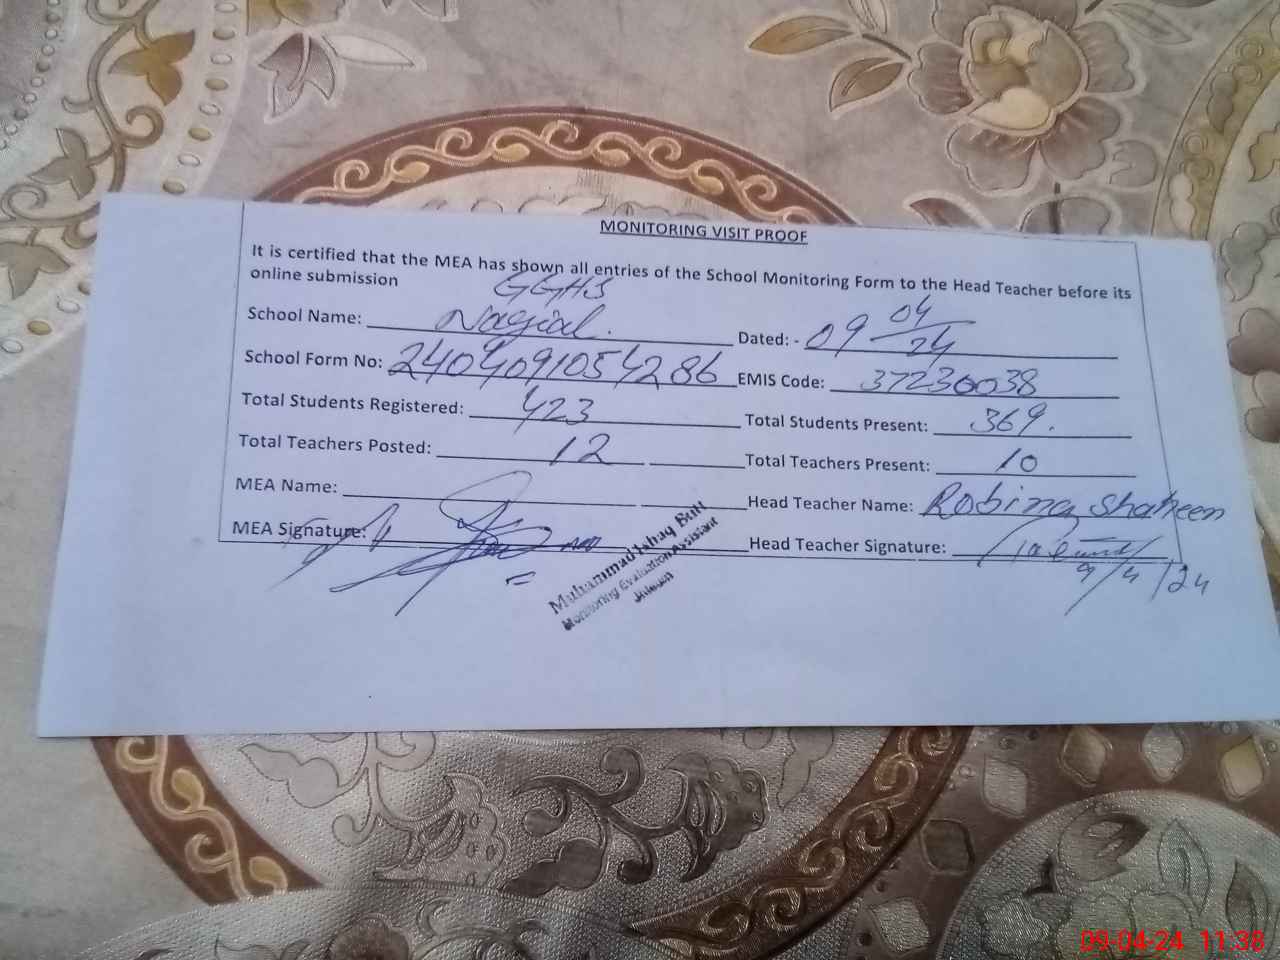 MONITORING VISIT PROOF
It is certified that the MEA has shown all entries of the School Monitoring Form to the Head Teacher before its
online submission
School Name: GGHS Nagial. Dated: - 09 04/24
School Form No: 2404091054286 EMIS Code: 37230038
Total Students Registered: 423 Total Students Present: 369.
Total Teachers Posted: 12 Total Teachers Present: 10
MEA Name: Head Teacher Name: Robina Shaheen
MEA Signature: Head Teacher Signature:
9/4/24
Muhammad Ishaq Butt
Monitoring Evaluation Assistant
Jhelum
09-04-24 11:38